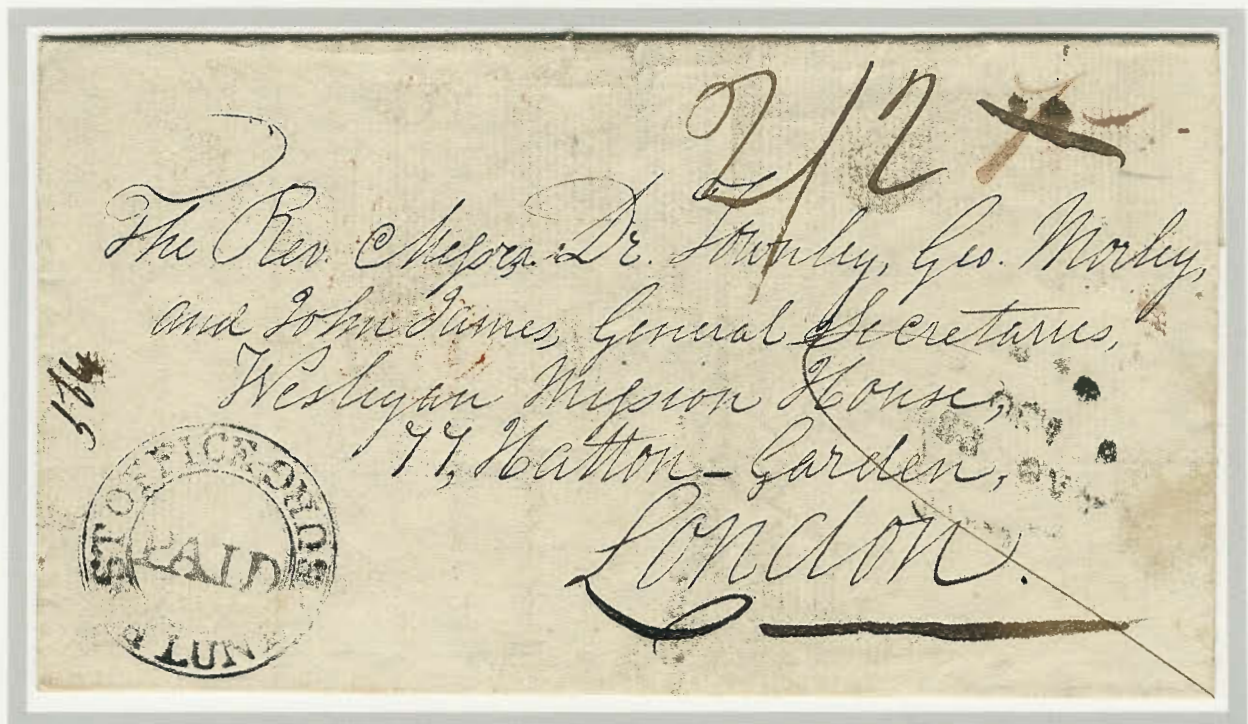 2/2
The Rev. Messrs. Dr. Townley, Geo. Morley,
and John James, General Secretaries,
Wesleyan Mission House,
77, Hatton-Garden,
London.
ST OFFICE
PAID